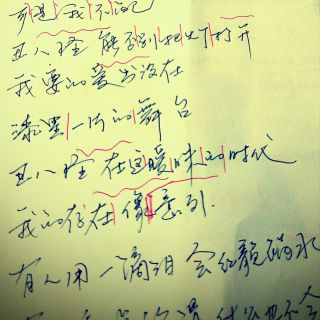 可是我不配
丑八怪 能否别把灯打开
我要的爱 出没在
漆黑一片的舞台
丑八怪 在这暧昧的时代
我的存在 像意外.
有人用一滴泪 会红颜祸水